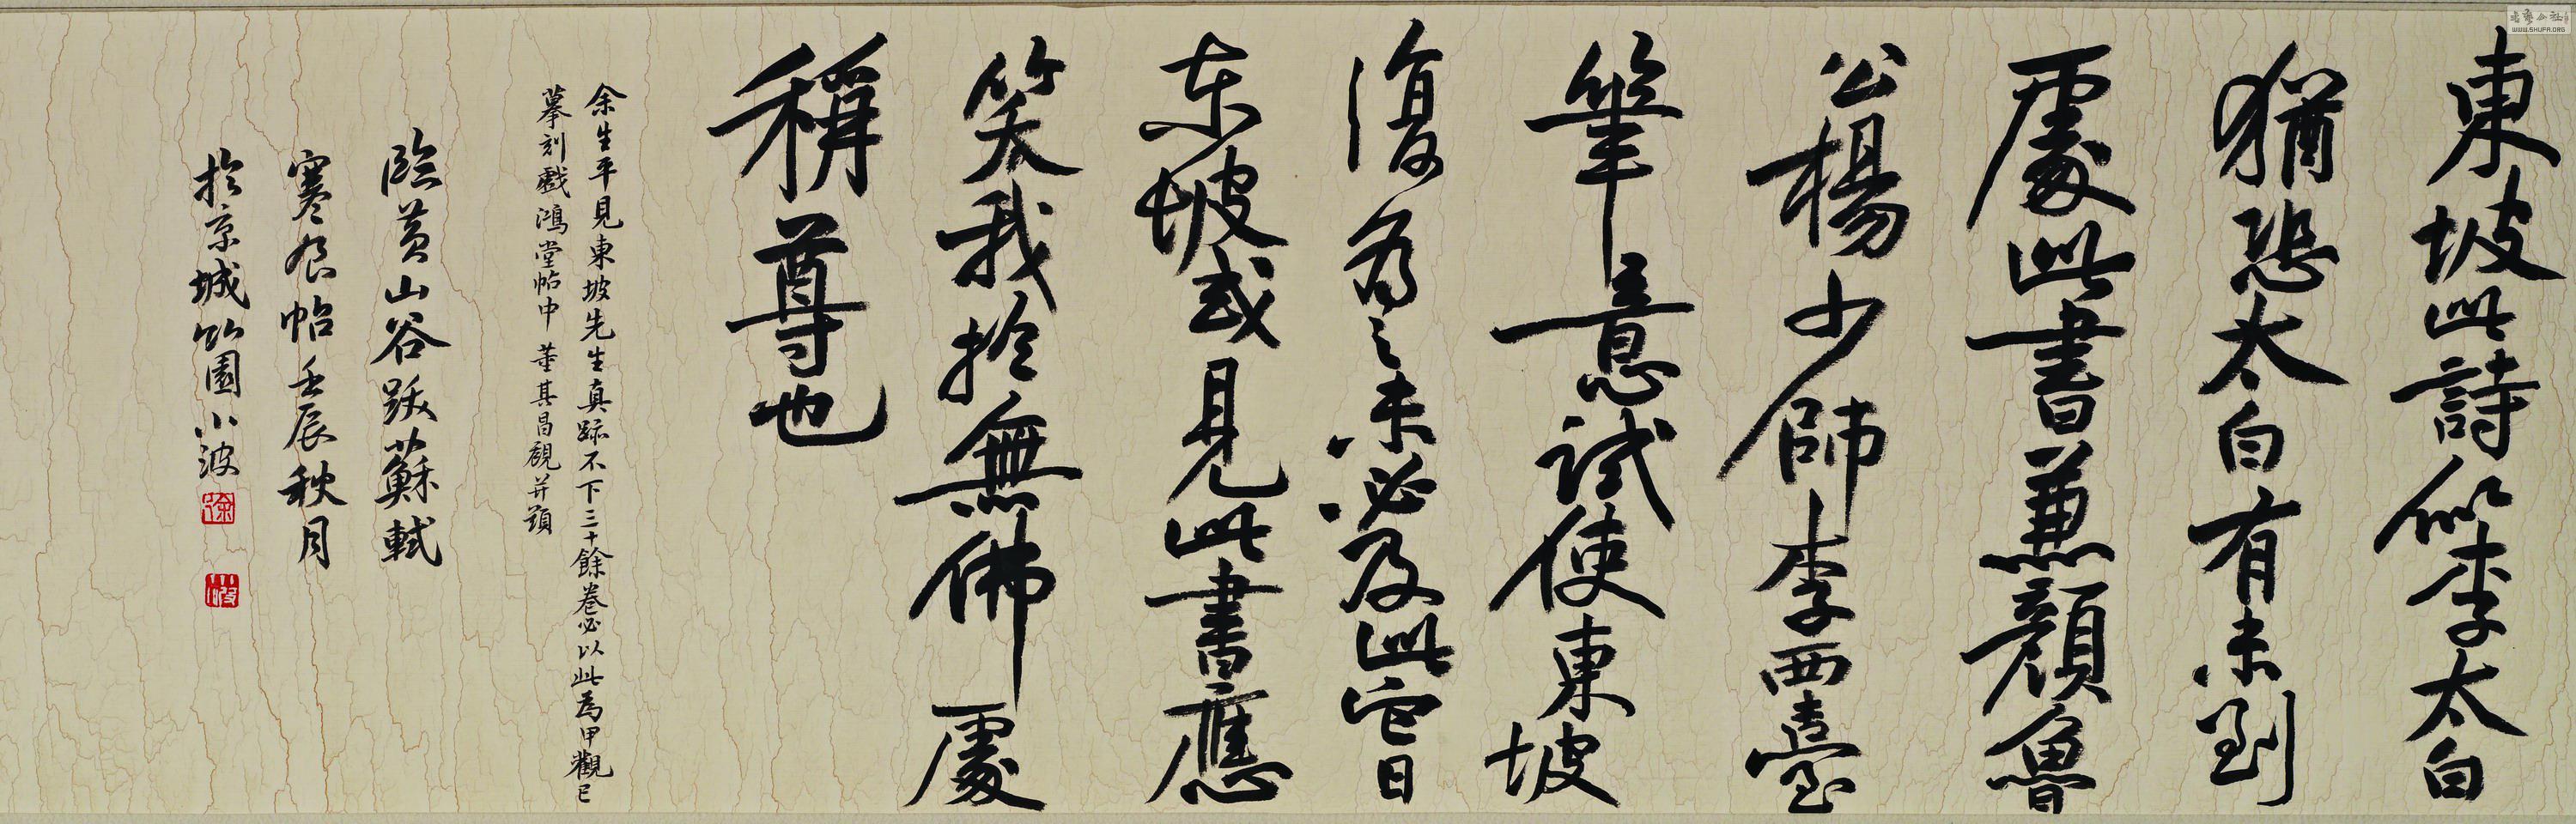 東坡此詩似李太白
猶恐太白有未到
處此書兼顏魯
公楊少師李西臺
筆意試使東坡
復為之未必及此它日
东坡或見此書應
笑我於無佛處
稱尊也
余生平見東坡先生真跡不下三十餘卷必以此為甲觀已
摹刻戲鴻堂帖中 董其昌觀并題
臨黃山谷跋蘇軾
寒食帖壬辰秋月
於京城竹園小波
徐
小波
WWW.SHUFA.ORG